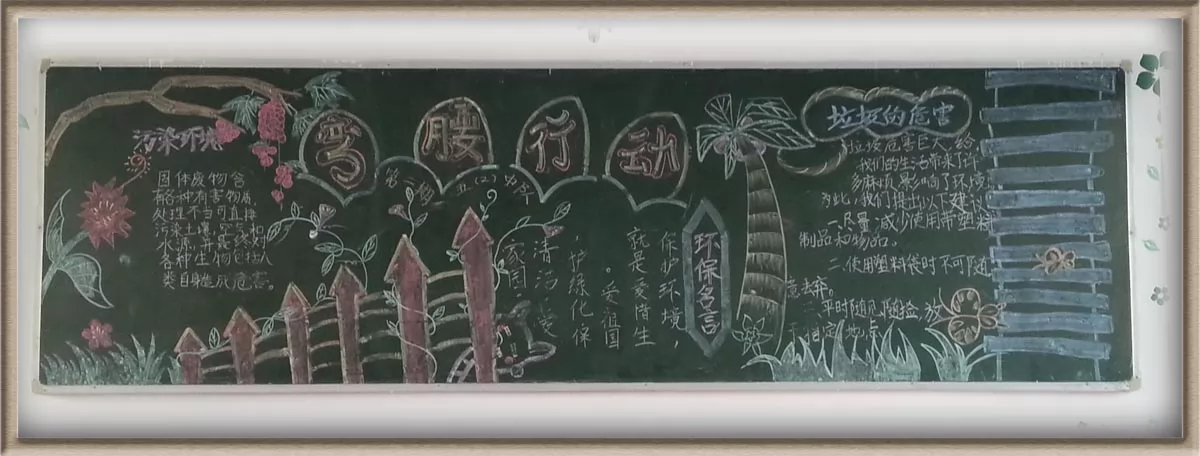 污染环境
固体废物含
有各种有害物质,
处理不当可直接
污染土壤、空气和
水源,并最终对
各种生物包括人
类自身造成危害。
弯腰行动
五(2)中队
环保名言
保护环境,
就是爱惜生
。爱祖国
,护绿化保
清洁,爱
家园
垃圾的危害
垃圾危害巨大,给
我们的生活带来了许
多麻烦,影响了环境
为此,我们提出以下建议
一.尽量减少使用带塑料
制品和物品。
二.使用塑料袋时不可随
意去弃。
三平时随见随捡,放
固定地点